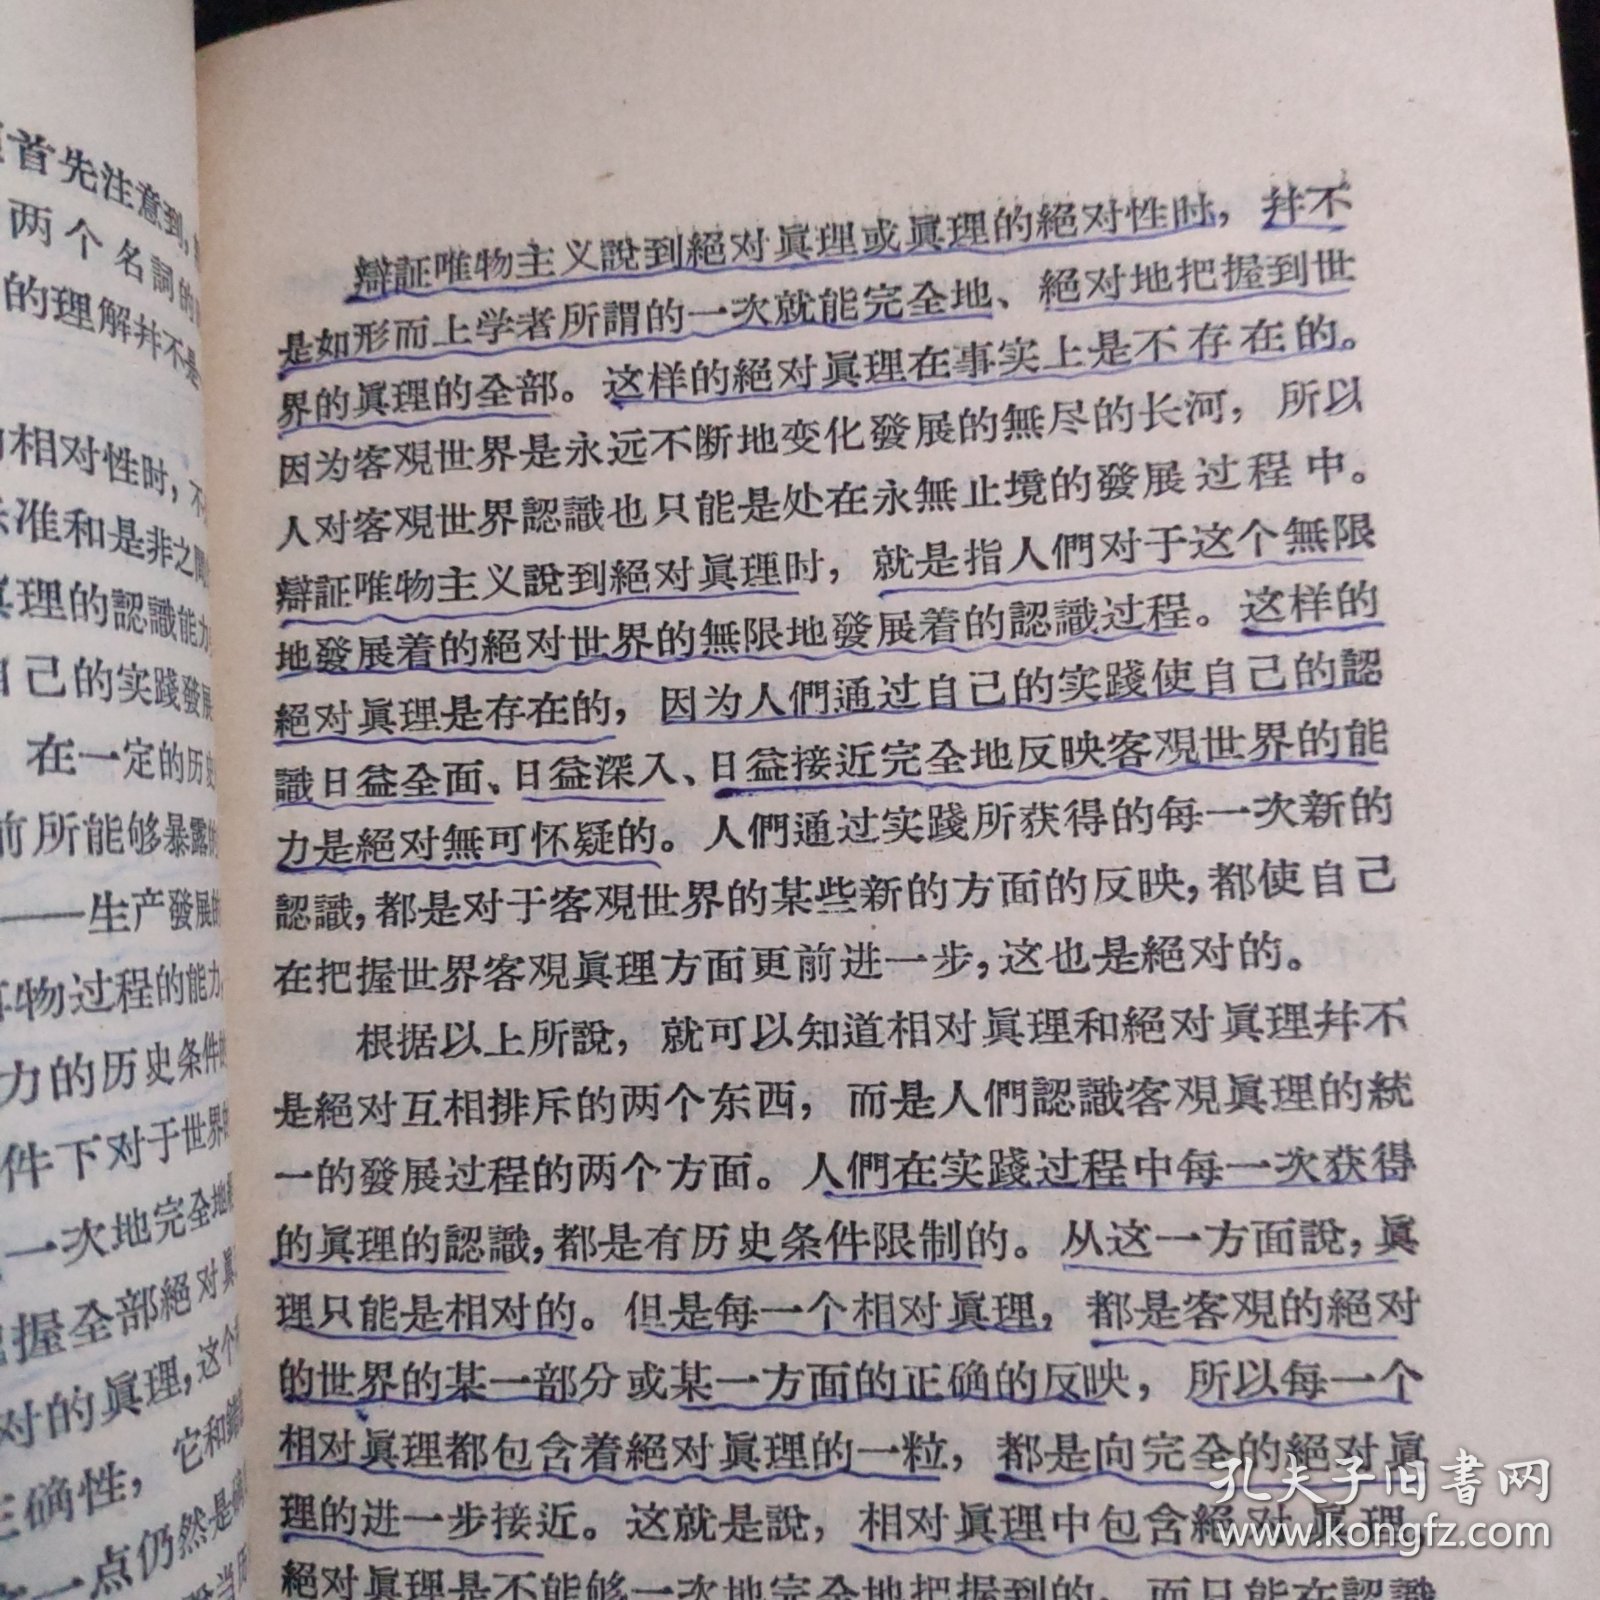 首先注意到,
两个名詞的
的理解幷不是
相对性时,不
准和是非之間
理的認識能力
己的实踐發展
在一定的历史
前所能够暴露的
——生产發展的
物过程的能力
力的历史条件
件下对于世界的
一次地完全地
握全部絕对眞
对的眞理,这个
正确性,它和錯
一点仍然是
辯証唯物主义說到絕对眞理或眞理的絕对性时，幷不
是如形而上学者所謂的一次就能完全地、絕对地把握到世
界的眞理的全部。这样的絕对眞理在事实上是不存在的。
因为客观世界是永远不断地变化發展的無尽的长河，所以
人对客观世界認識也只能是处在永無止境的發展过程中。
辯証唯物主义說到絕对眞理时，就是指人們对于这个無限
地發展着的絕对世界的無限地發展着的認識过程。这样的
絕对眞理是存在的，因为人們通过自己的实踐使自己的認
識日益全面、日益深入、日益接近完全地反映客观世界的能
力是絕对無可怀疑的。人們通过实踐所获得的每一次新的
認識，都是对于客观世界的某些新的方面的反映，都使自己
在把握世界客观眞理方面更前进一步，这也是絕对的。
根据以上所說，就可以知道相对眞理和絕对眞理幷不
是絕对互相排斥的两个东西，而是人們認識客观眞理的統
一的發展过程的两个方面。人們在实踐过程中每一次获得
的眞理的認識，都是有历史条件限制的。从这一方面說，眞
理只能是相对的。但是每一个相对眞理，都是客观的絕对
的世界的某一部分或某一方面的正确的反映，所以每一个
相对眞理都包含着絕对眞理的一粒，都是向完全的絕对眞
理的进一步接近。这就是說，相对眞理中包含絕对眞理，
絕对眞理是不能够一次地完全地把握到的，而只能在認識
孔夫子旧書网
www.kongfz.com